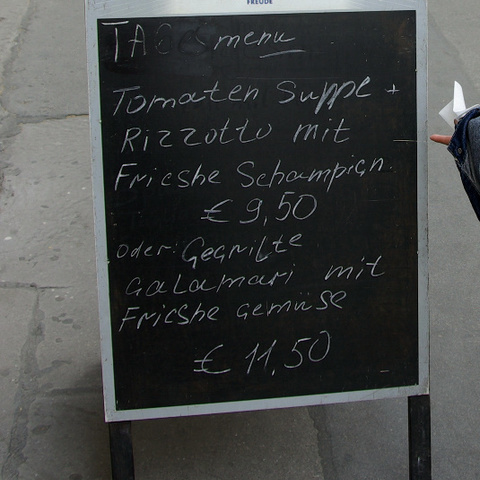 FREUDE
TAGES menu
Tomaten Suppe +
Rizzotto mit
Fricshe Schampign.
€ 9,50
oder: Gegrilte
Calamari mit
Fricshe Gemüse
€ 11,50